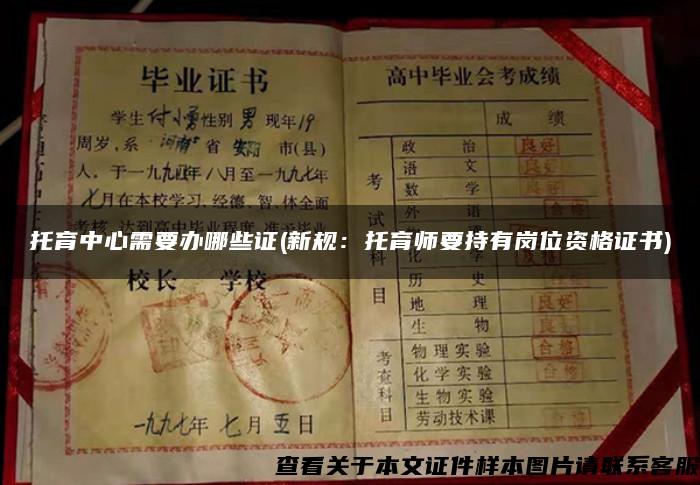 毕业证书
学生付小勇性别男现年19
周岁,系河南省安阳市(县)
人。于一九九四年八月至一九九七年
七月在本校学习,经德、智、体全面
托育中心需要办哪些证(新规：托育师要持有岗位资格证书)
校长 学校
一九九七年七月五日
高中毕业会考成绩
成绩
考试科目
政治 良好
语文 良好
数学
外语 合格
历史 良好
地理 良好
生物 良好
考查科目
物理实验 合格
化学实验 合格
生物实验
劳动技术课 合格
查看关于本文证件样本图片请联系客服